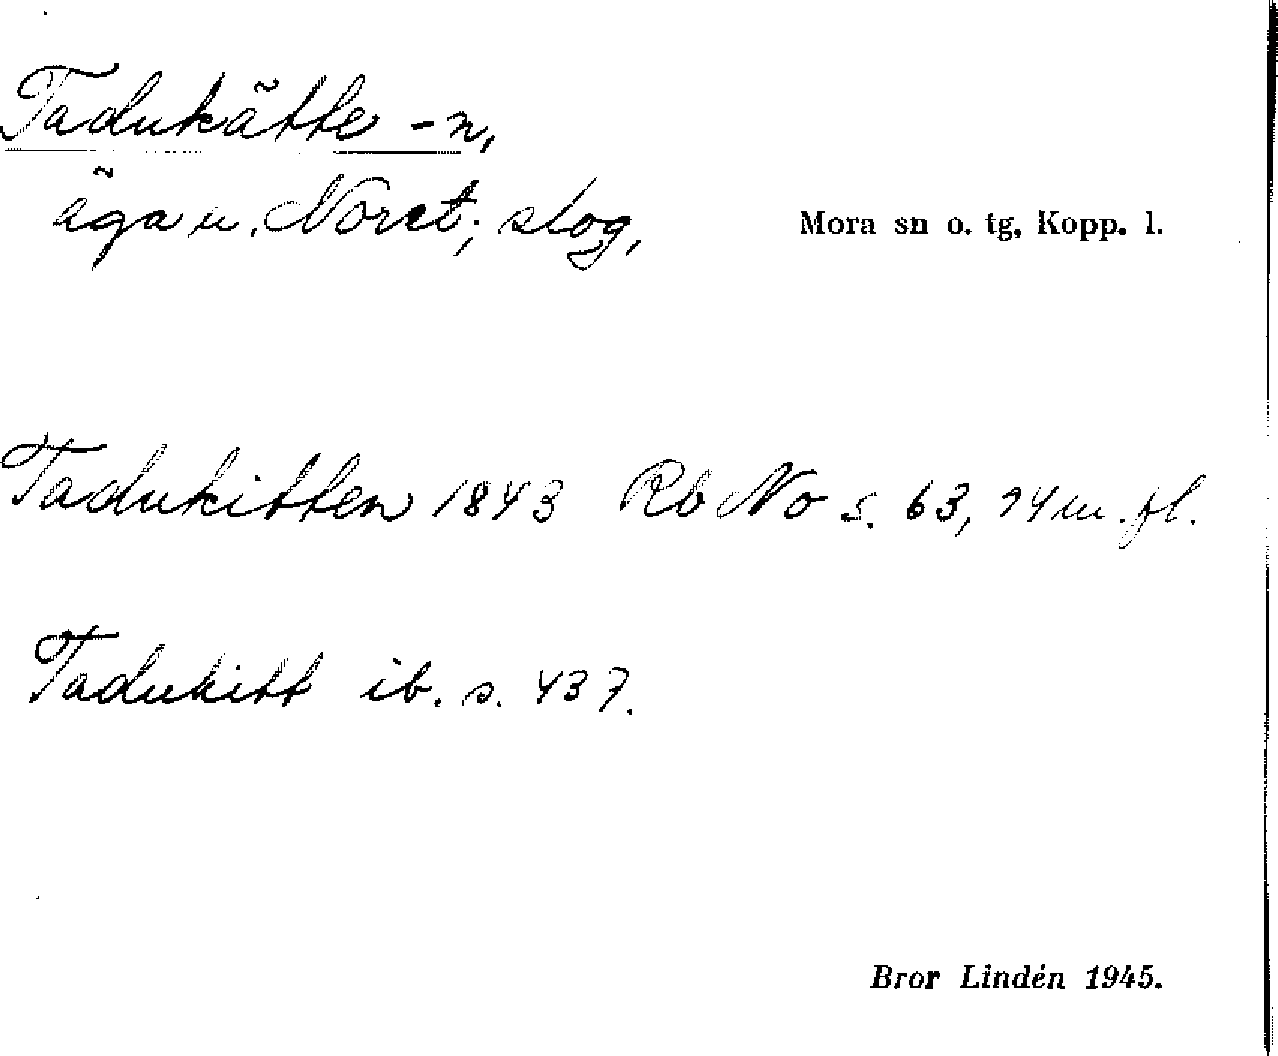 Tadukätte -n,
äga u. Noret; slog,
Mora sn o. tg, Kopp. l.
Tadukitten 1843 Rb No s. 63, 74 m. fl.
Tadukitt ib. s. 437.
Bror Lindén 1945.